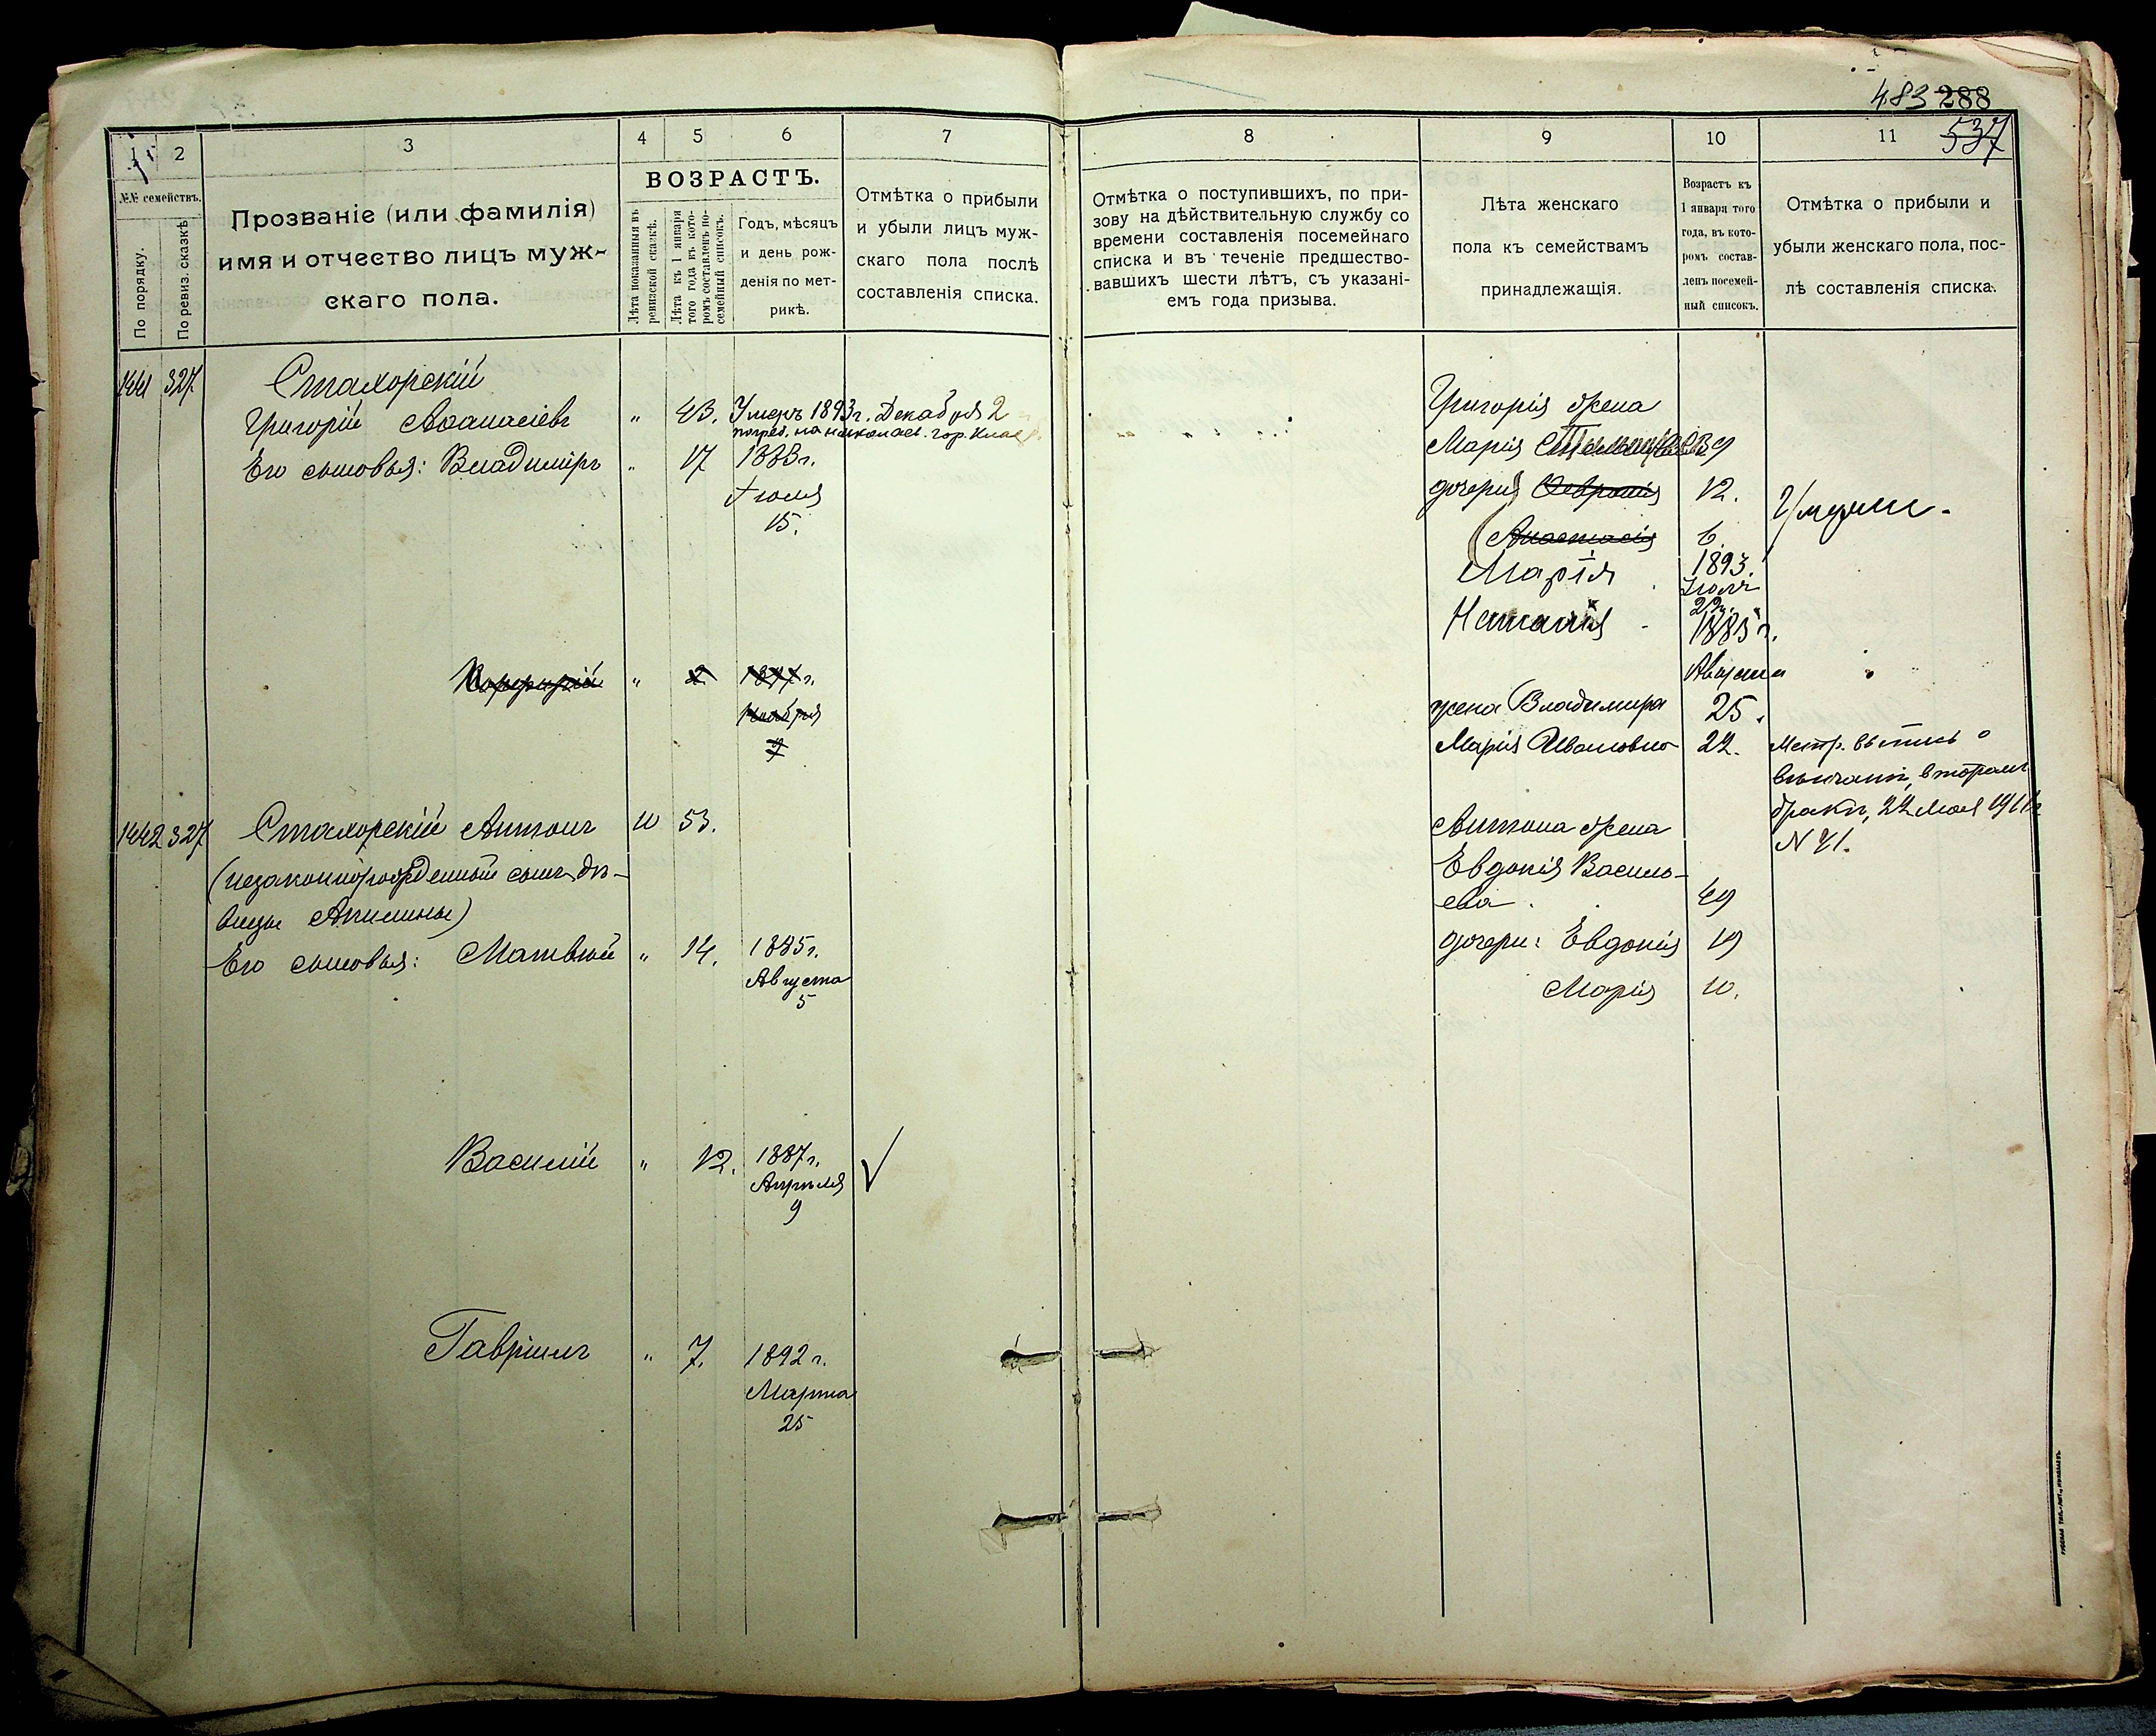 483 288
537
1 2 3 4 5 6 7
№№ семействъ.
По порядку.
По ревиз. сказкѣ
Прозваніе (или фамилія)
имя и отчество лицъ муж-
скаго пола.
ВОЗРАСТЪ.
Лѣта показанныя въ
ревизской сказкѣ.
Лѣта къ 1 января
того года къ кото-
ромъ составленъ по-
семейный списокъ.
Годъ, мѣсяцъ
и день рож-
денія по мет-
рикѣ.
Отмѣтка о прибыли
и убыли лицъ муж-
скаго пола послѣ
составленія списка.
1441 327. Стахорскій
Григорій Аѳанасіевъ " 43. Умеръ 1893 г. Декабря 2
погреб. на николаев. гор.
Его сыновья: Владиміръ " 17 1883 г.
Іюля
15.
" 2 1897 г.
Ноября
1442 327 Стахорскій Антонъ 10 53.
(незаконнорожденный сынъ дѣ-
вицы Акилины)
Его сыновья: Матвѣй " 14. 1885 г.
Августа
5
Василій " 12. 1887 г.
Апрѣля
9
Гавріилъ " 7. 1892 г.
Марта
25
8 9 10 11
Отмѣтка о поступившихъ, по при-
зову на дѣйствительную службу со
времени составленія посемейнаго
списка и въ теченіе предшество-
вавшихъ шести лѣтъ, съ указані-
емъ года призыва.
Лѣта женскаго
пола къ семействамъ
принадлежащія.
Возрастъ къ
1 января того
года, въ кото-
ромъ состав-
ленъ посемей-
ный списокъ.
Отмѣтка о прибыли и
убыли женскаго пола, пос-
лѣ составленія списка.
Григорія жена
Марія 39
дочери Февронія 12.
Умерли.
Анастасія 6.
Марія 1893.
Іюля
22.
Наталія 1885 г.
Августа
жена Владимира 25.
Марія Ивановна 22. Метр. выпись о
вѣнчаніи, вторымъ
бракъ, 22 Мая 1911 г
N 41.
Антона жена
Евдокія Василь-
ева 49
дочери: Евдокія 19
Марія 10.